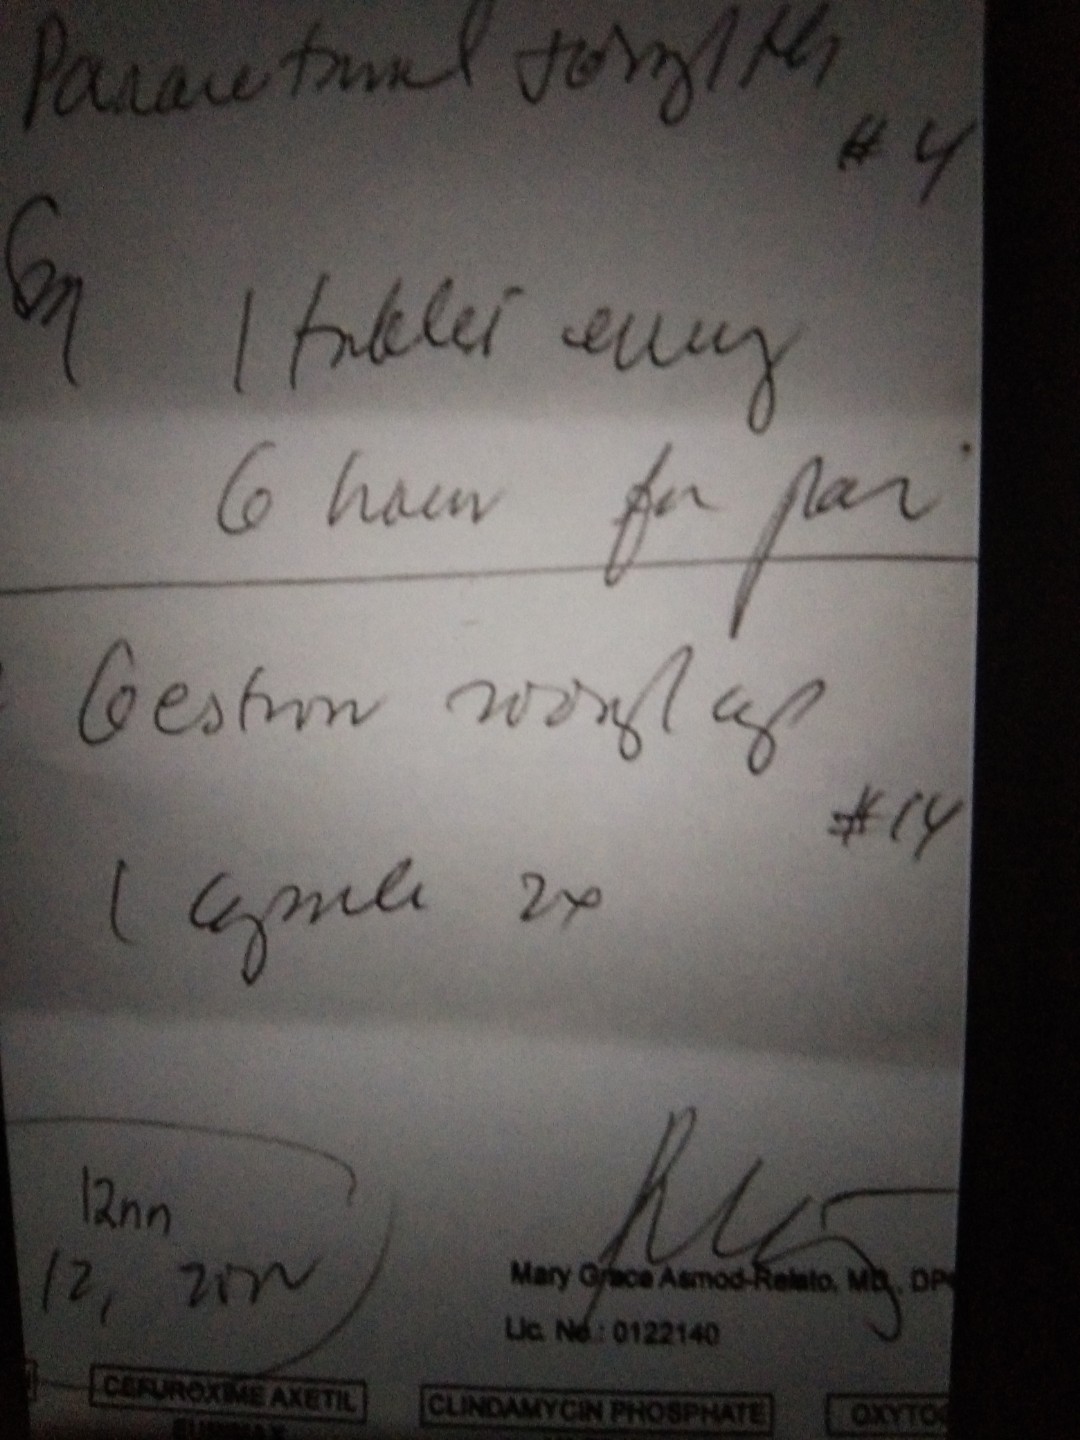 Paracetamol 500mg/tab
#4
1 tablet every
6 hours for pain
Gestron 200mg/cap
#14
1 capsule 2x
12nn
12,
Mary Grace Asmod-Relato, MD, DP
Lic. No.: 0122140
CEFUROXIME AXETIL
CLINDAMYCIN PHOSPHATE
OXYTO